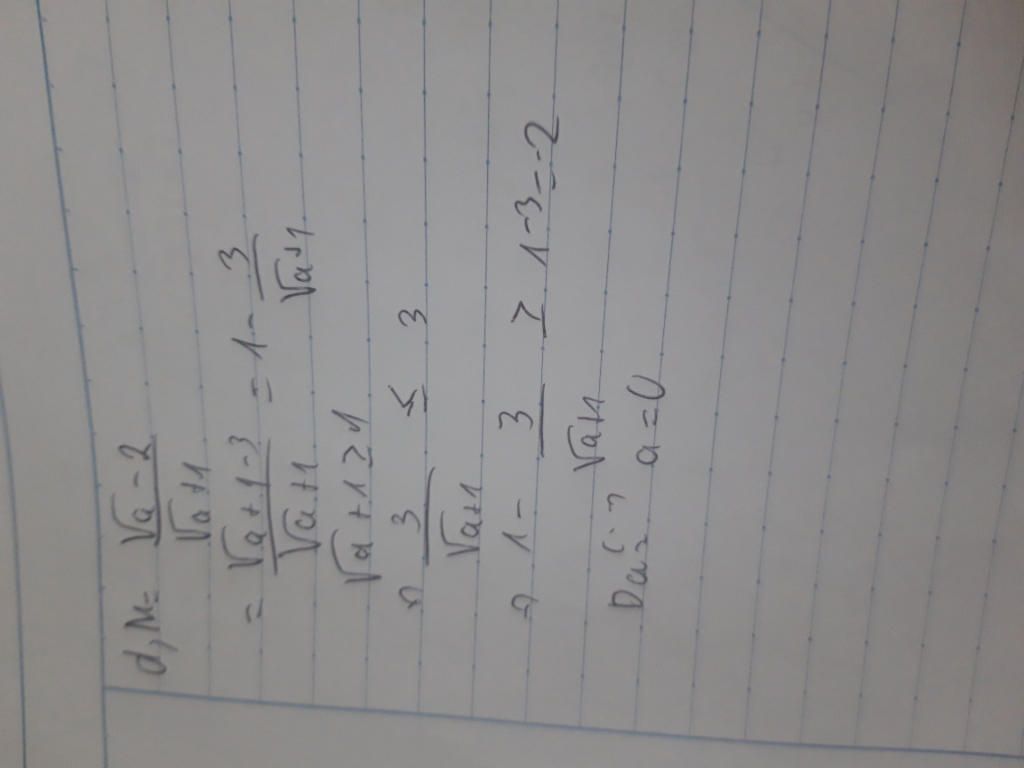 d, M = (√a - 2)/(√a+1)
= (√a + 1 - 3)/(√a+1) = 1 - 3/(√a+1)
√a + 1 ≥ 1
=> 3/(√a+1) ≤ 3
=> 1 - 3/(√a+1) ≥ 1-3=-2
a=0